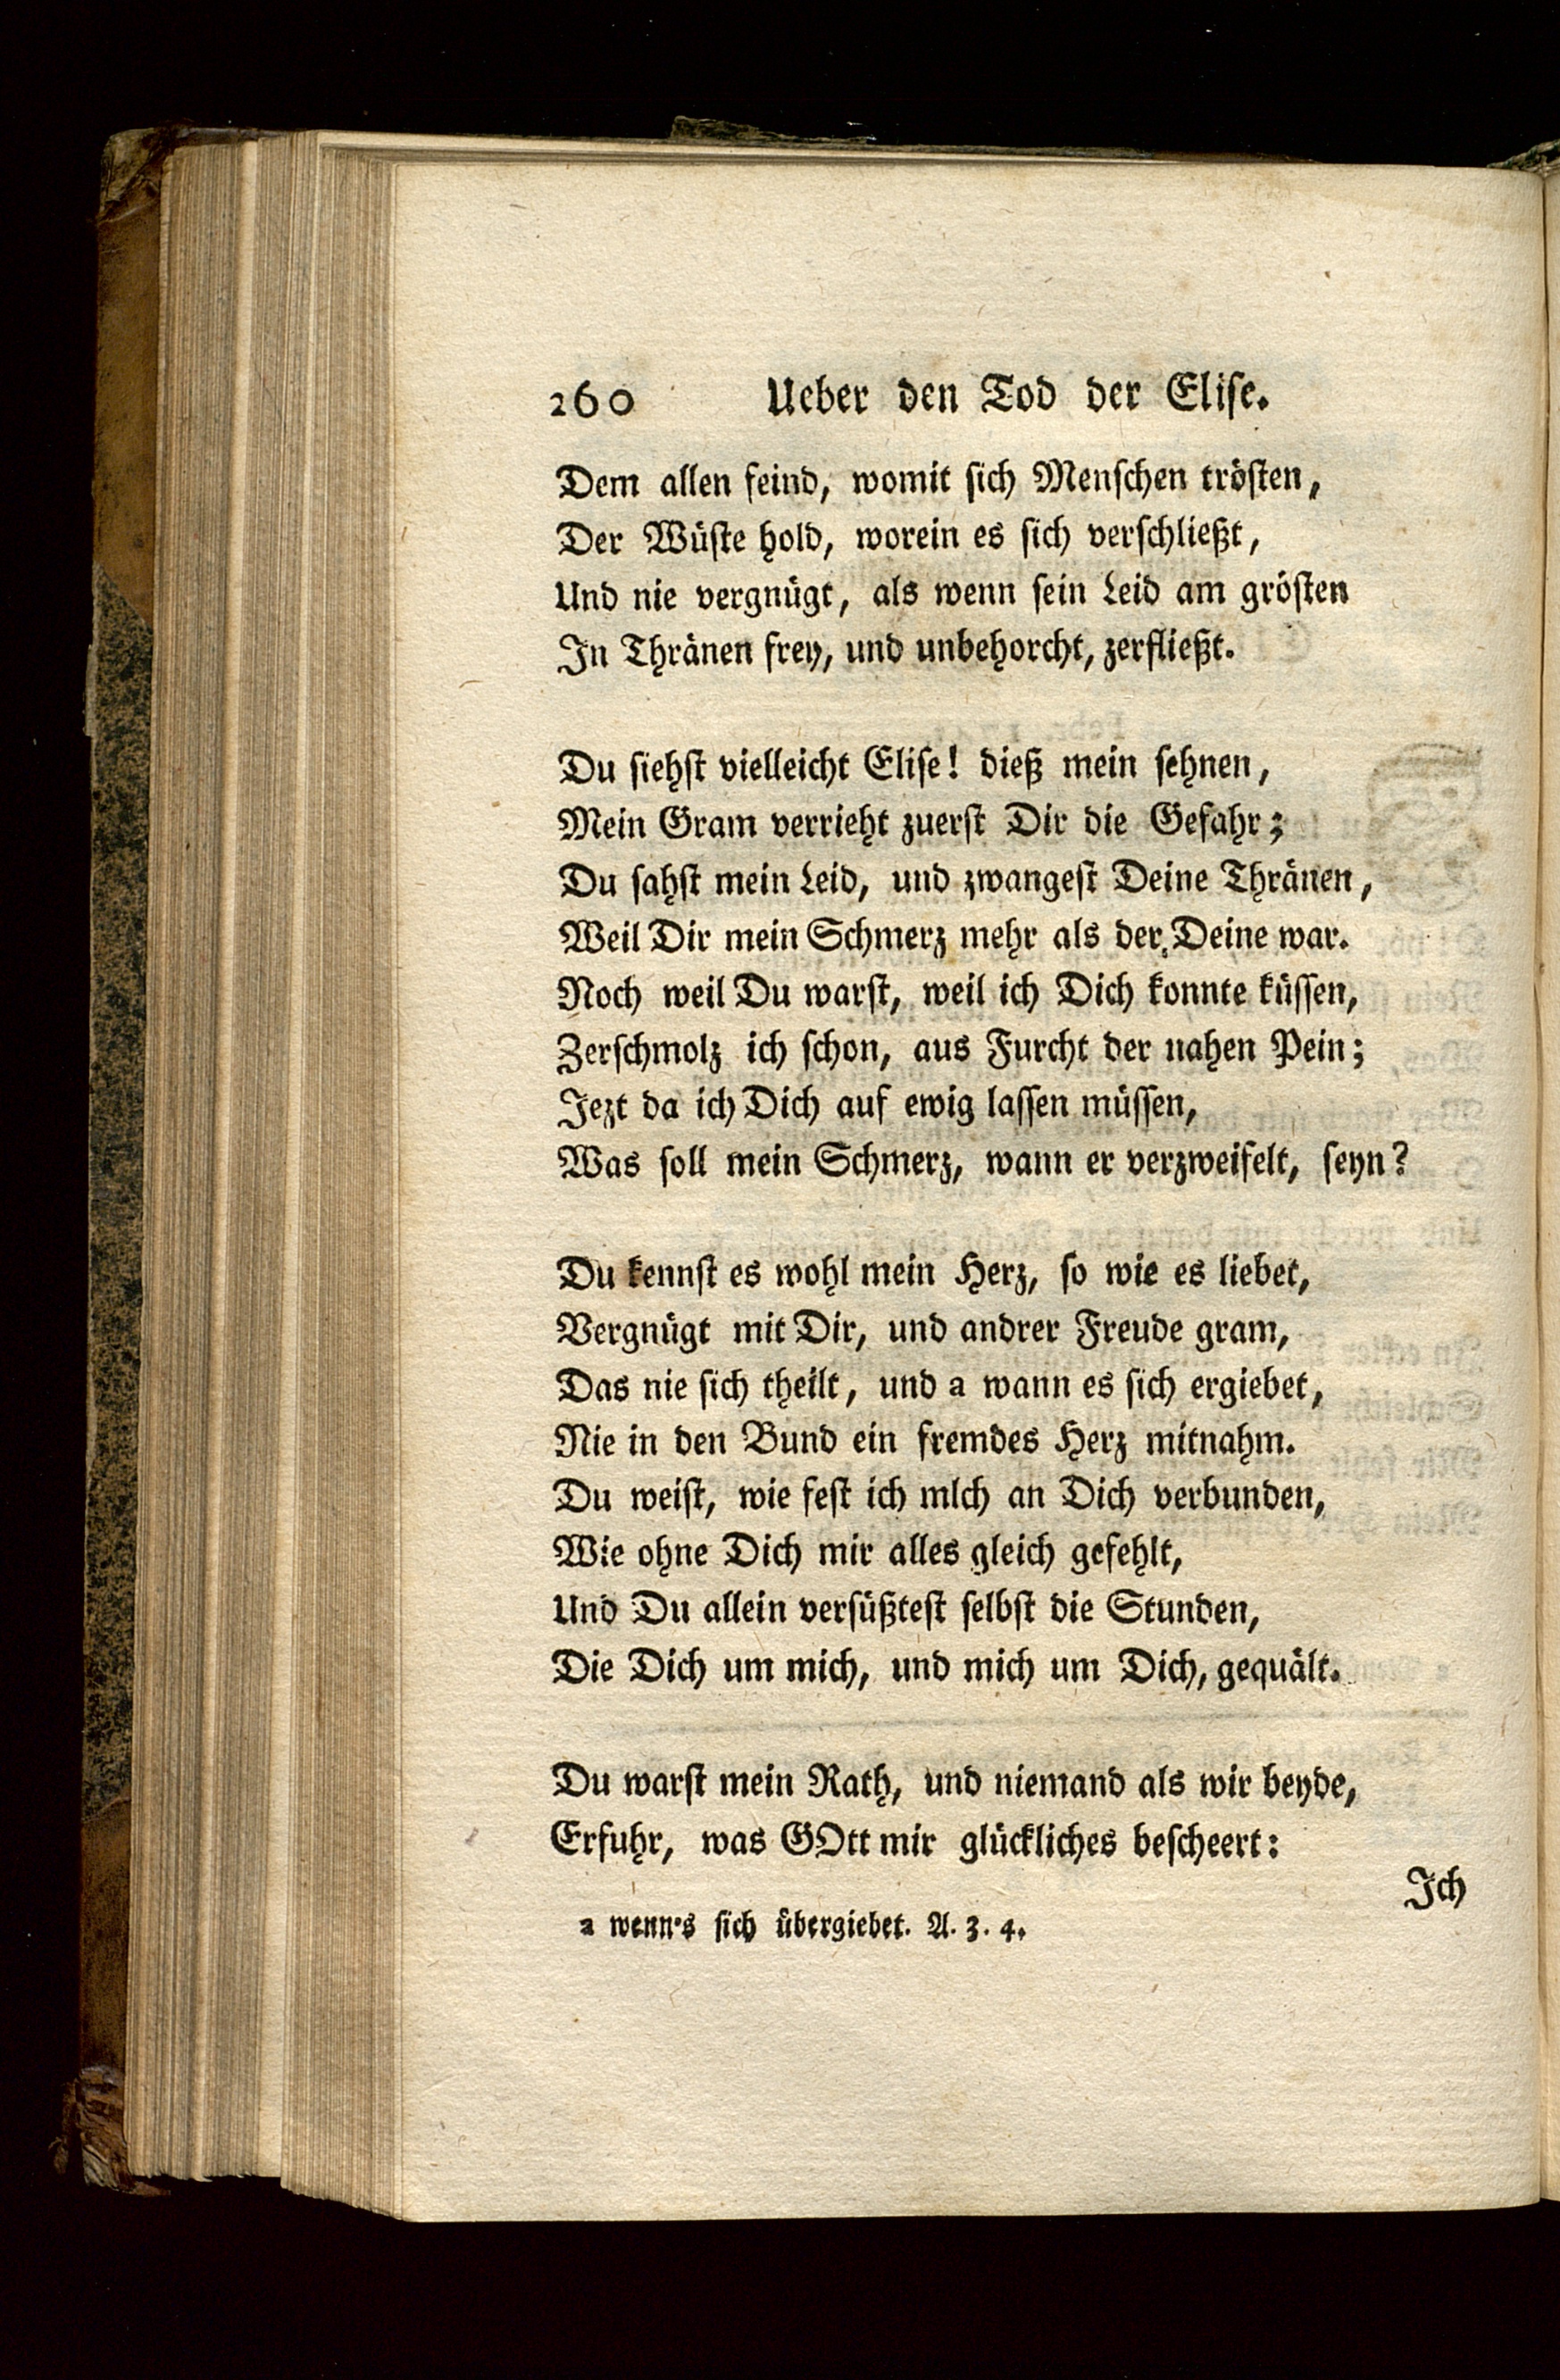 260 Ueber den Tod der Elise.
Dem allen feind, womit sich Menschen trösten,
Der Wüste hold, worein es sich verschließt,
Und nie vergnügt, als wenn sein Leid am grösten
In Thränen frey, und unbehorcht, zerfließt.
Du siehst vielleicht Elise! dieß mein sehnen,
Mein Gram verrieht zuerst Dir die Gefahr;
Du sahst mein Leid, und zwangest Deine Thränen,
Weil Dir mein Schmerz mehr als der Deine war.
Noch weil Du warst, weil ich Dich konnte küssen,
Zerschmolz ich schon, aus Furcht der nahen Pein;
Jezt da ich Dich auf ewig lassen müssen,
Was soll mein Schmerz, wann er verzweifelt, seyn?
Du kennst es wohl mein Herz, so wie es liebet,
Vergnügt mit Dir, und andrer Freude gram,
Das nie sich theilt, und a wann es sich ergiebet,
Nie in den Bund ein fremdes Herz mitnahm.
Du weist, wie fest ich mlch an Dich verbunden,
Wie ohne Dich mir alles gleich gefehlt,
Und Du allein versüßtest selbst die Stunden,
Die Dich um mich, und mich um Dich, gequält.
Du warst mein Rath, und niemand als wir beyde,
Erfuhr, was GOtt mir glückliches bescheert:
Ich
a wenn's sich übergiebet. A. 3. 4.